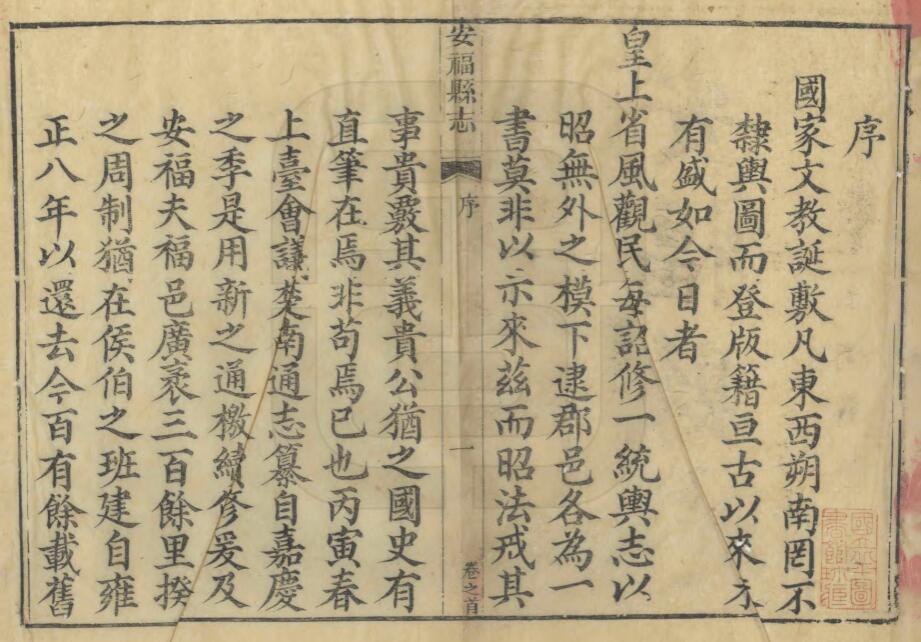 序
國家文教誕敷凡東西朔南罔不
隸輿圖而登版籍亘古以來未
有盛如今日者
皇上省風觀民每詔修一統輿志以
昭無外之模下逮郡邑各為一
書莫非以示來茲而昭法戒其
安福縣志 序 一 卷之首
事貴覈其義貴公猶之國史有
直筆在焉非苟焉已也丙寅春
上臺會議楚南通志纂自嘉慶
之季是用新之通檄續修爰及
安福夫福邑廣袤三百餘里揆
之周制猶在侯伯之班建自雍
正八年以還去今百有餘載舊